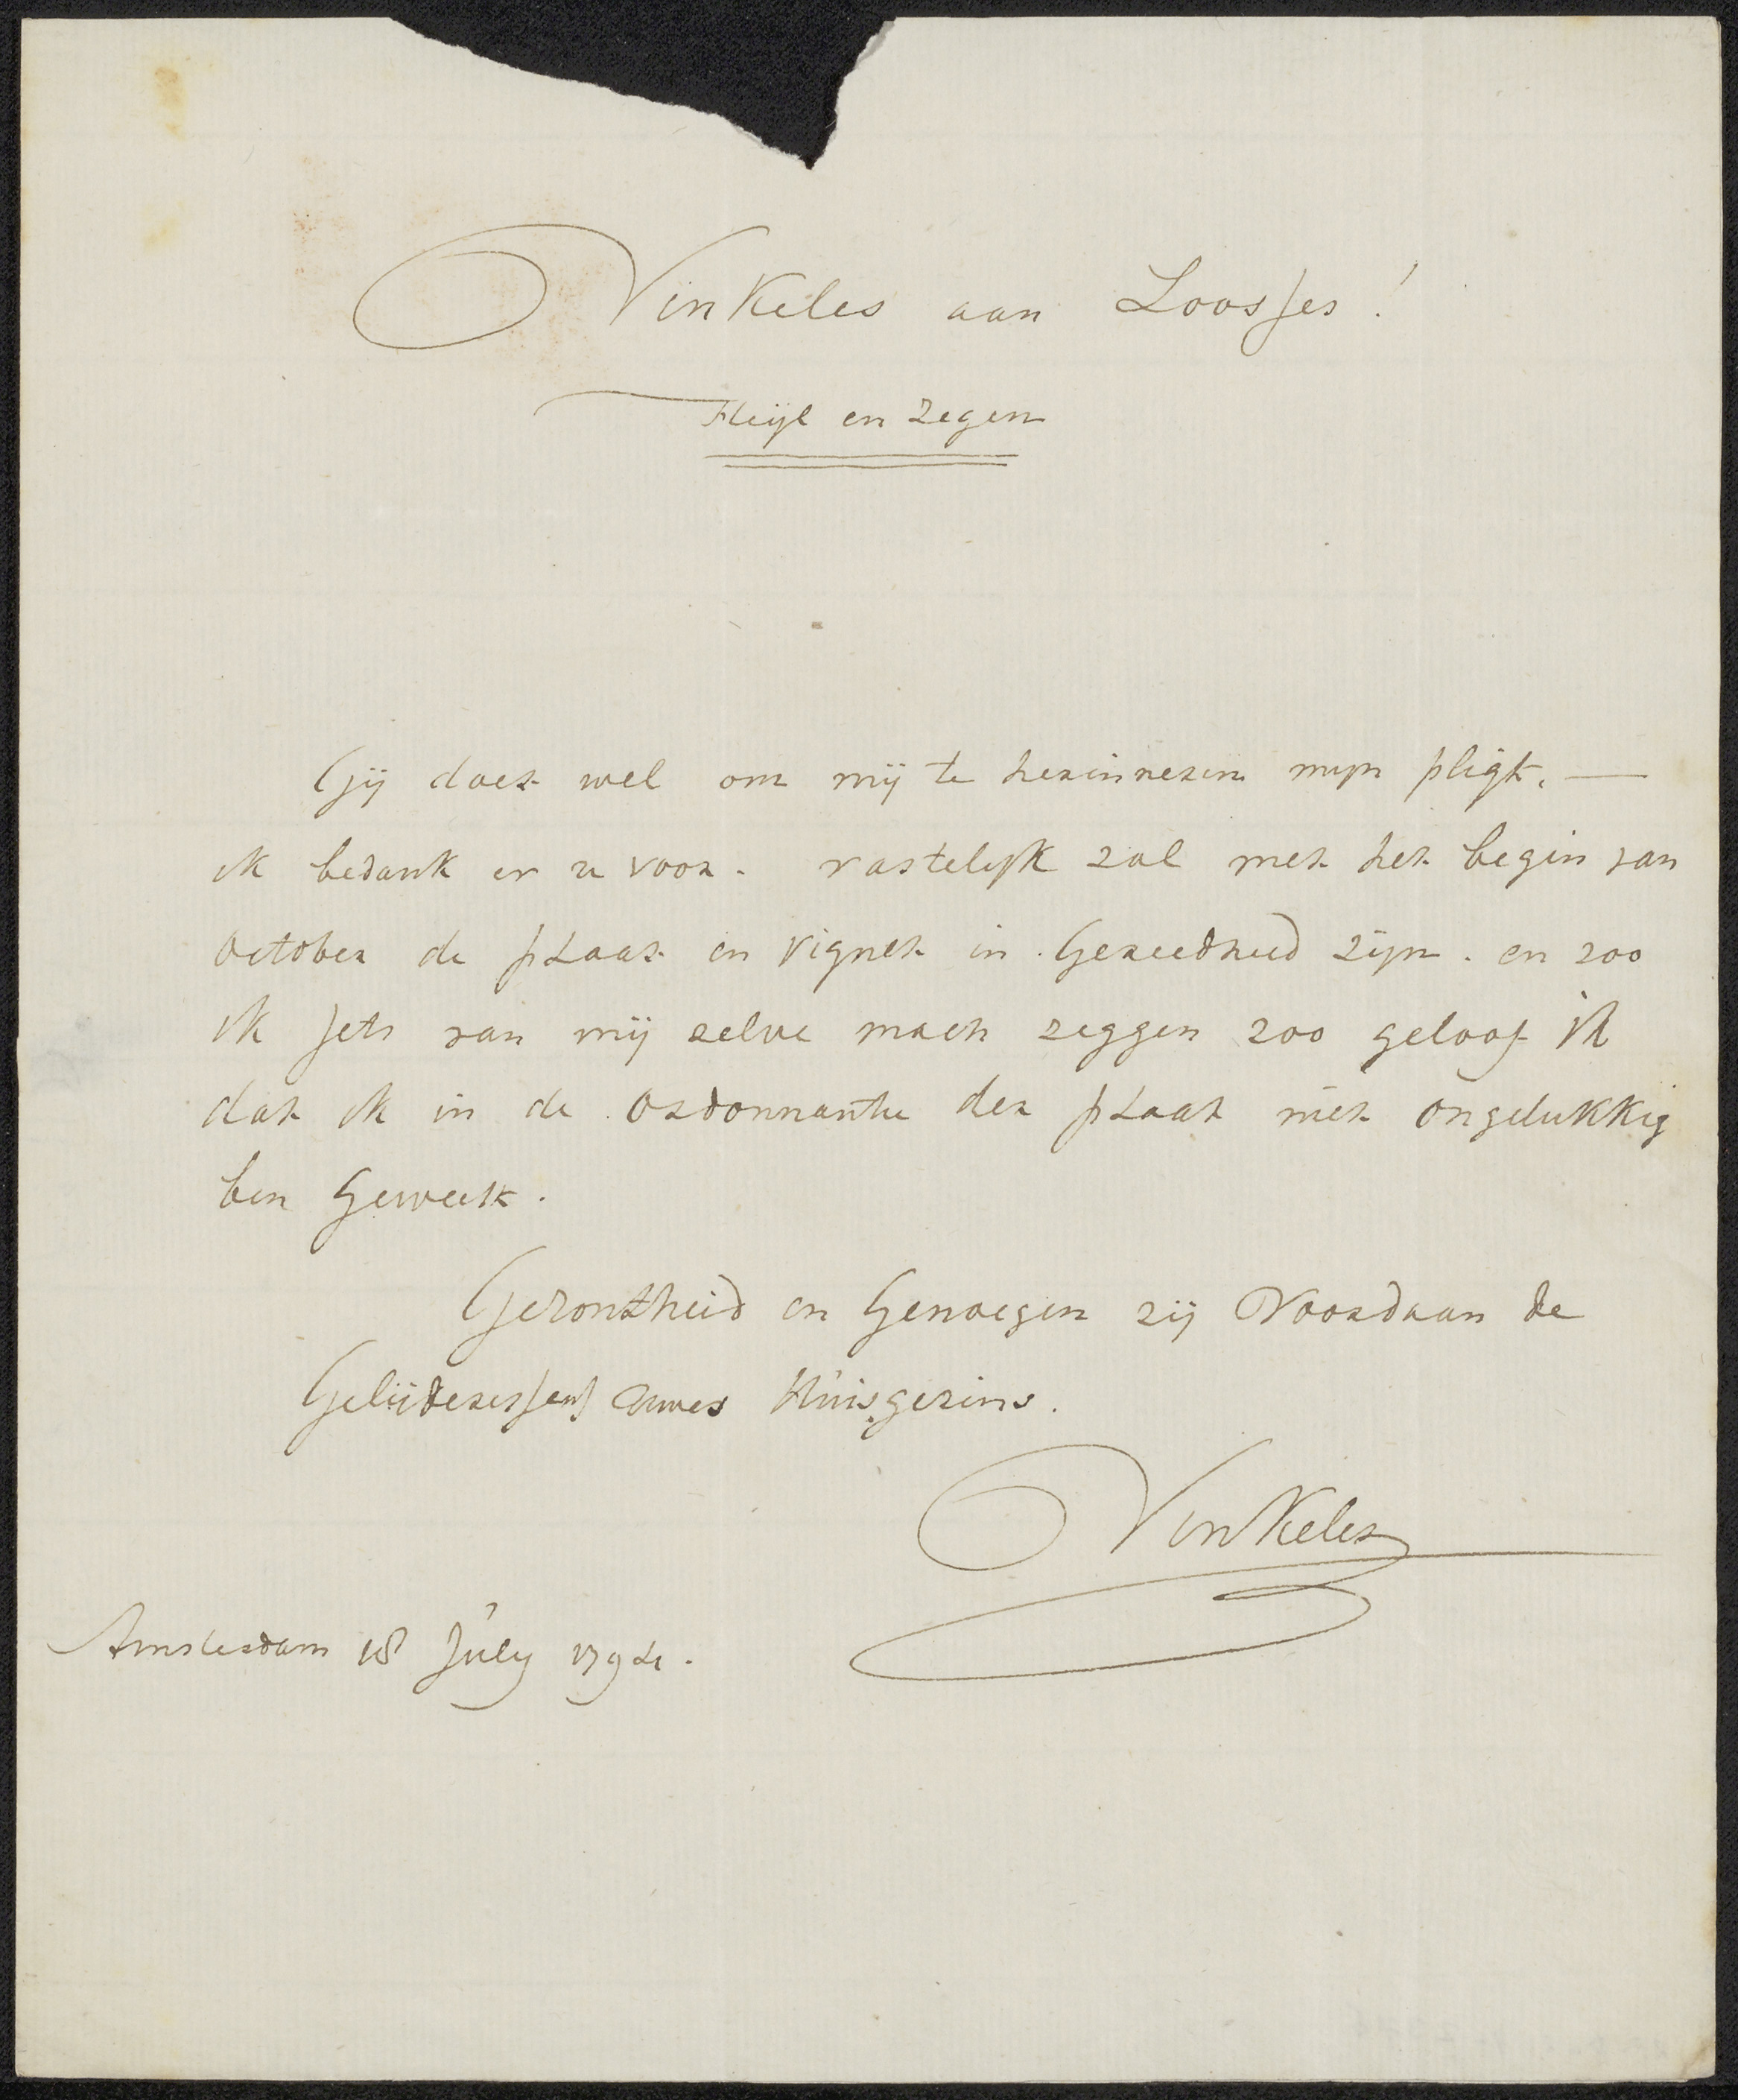 Vinkeles aan Loosjes!
Heijl en Zegen
Gij doet wel om mij te herinneren myn pligt. —
ik bedank er u voor. vastelyk zal met het begin van
October de plaat en vignet in Gereedheid zijn. en zoo
ik jets van mij zelve mach zeggen zoo geloof ik
dat ik in de Ordonnantie der plaat niet ongelukkig
ben Geweest.
Gezontheid en Genoegen zij Voordaan de
Gelijderessen uwes Huisgezins.
Vinkeles
Amsterdam 18 July 1794.